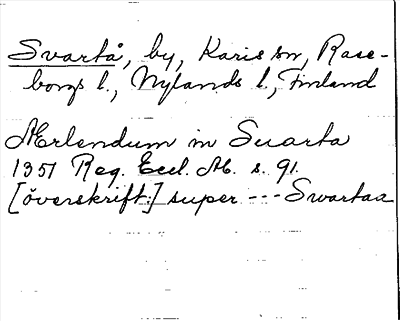 Svartå, by, Karis sn, Rase-
borgs l., Nylands l., Finland
Mrlendum in Suarta
1351 Reg. Eccl. M. s. 91.
[överskrift:] super --- Swartaa